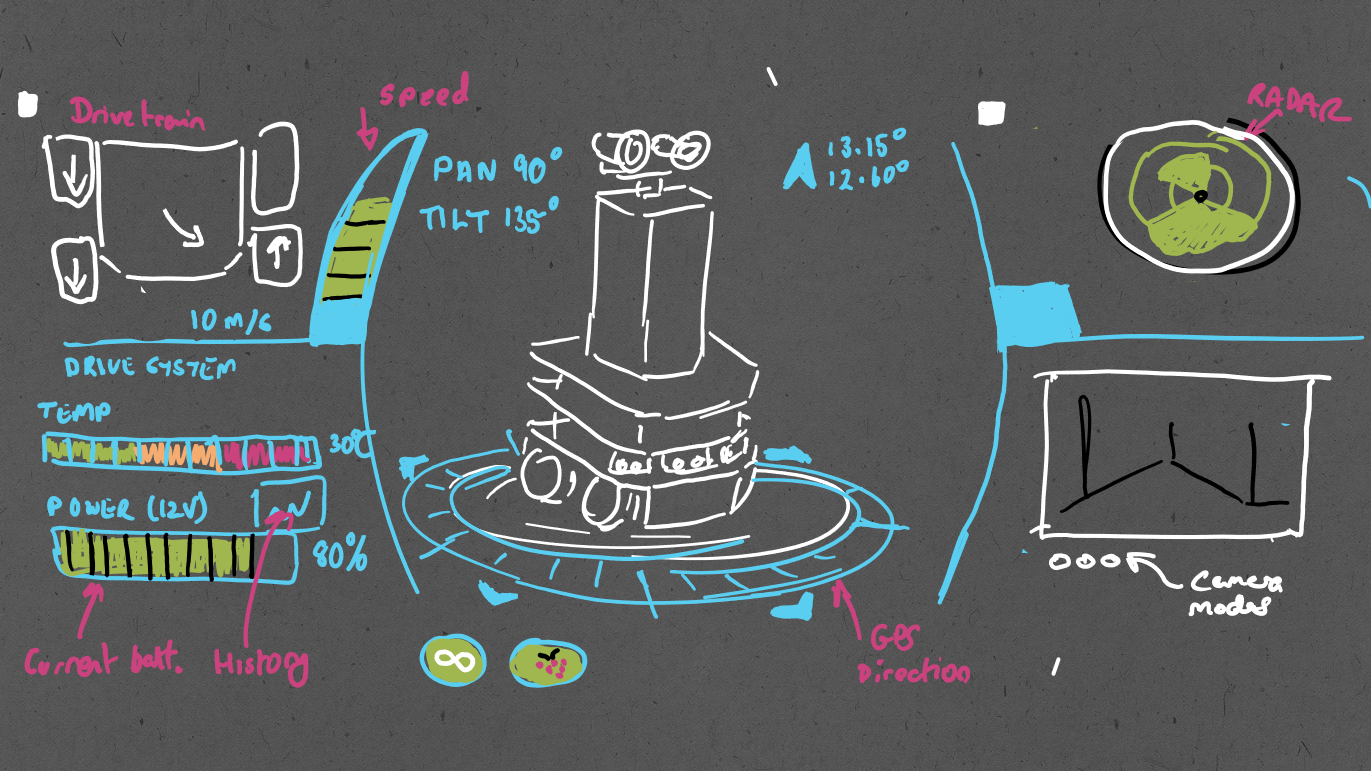 Drivetrain
10 m/s
DRIVE SYSTEM
TEMP
30°C
POWER (12V)
80%
Current batt.
History
Speed
PAN 90°
TILT 135°
13.15°
12.60°
GPS
Direction
RADAR
Camera
modes